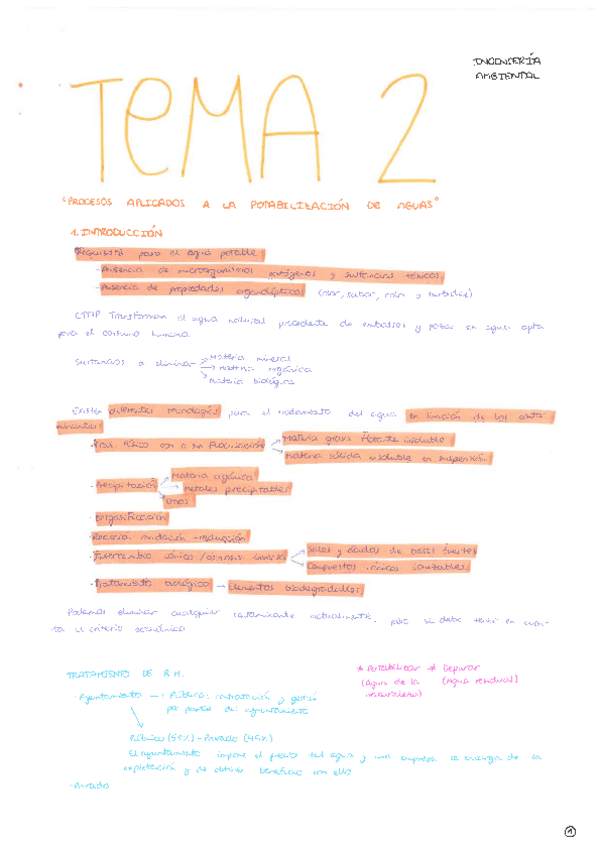 INGENIERÍA
AMBIENTAL
TEMA 2
"PROCESOS APLICADOS A LA POTABILIZACIÓN DE AGUAS"
1. INTRODUCCIÓN
Requisitos para el agua potable:
- Ausencia de microorganismos patógenos y sustancias tóxicas
- Ausencia de propiedades organolépticas (olor, sabor, color y turbidez)
ETAP Transforman el agua natural procedente de embalses y pozos en agua apta
para el consumo humano.
Sustancias a eliminar → Materia mineral
→ Materia orgánica
→ Materia biológica
Existen diferentes tecnologías para el tratamiento del agua en función de los conta-
minantes:
físico con o sin floculación → Materia grasa flotante insoluble
→ Materia sólida insoluble en suspensión
- Precipitación → Materia orgánica
→ Metales precipitables
→ Otros
Reacción oxidación-reducción
- Intercambio iónico / ósmosis inversa → Sales y ácidos de bases fuertes
→ Compuestos iónicos
- Tratamiento biológico → Elementos biodegradables
Podemos eliminar cualquier contaminante actualmente, pero se debe tener en cuen-
ta el criterio económico
TRATAMIENTO DE
* Potabilizar ≠ Depurar
(Agua de la (Agua residual)
naturaleza)
- Ayuntamiento → Pública: contratación y gestión
por parte del ayuntamiento
Público (55%) - Privado (45%)
El ayuntamiento impone el precio del agua y una empresa se encarga de la
explotación y de obtener beneficio con ello
- Privado
1